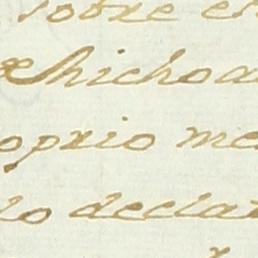 sobre es
chicho a
oprio me
to declar